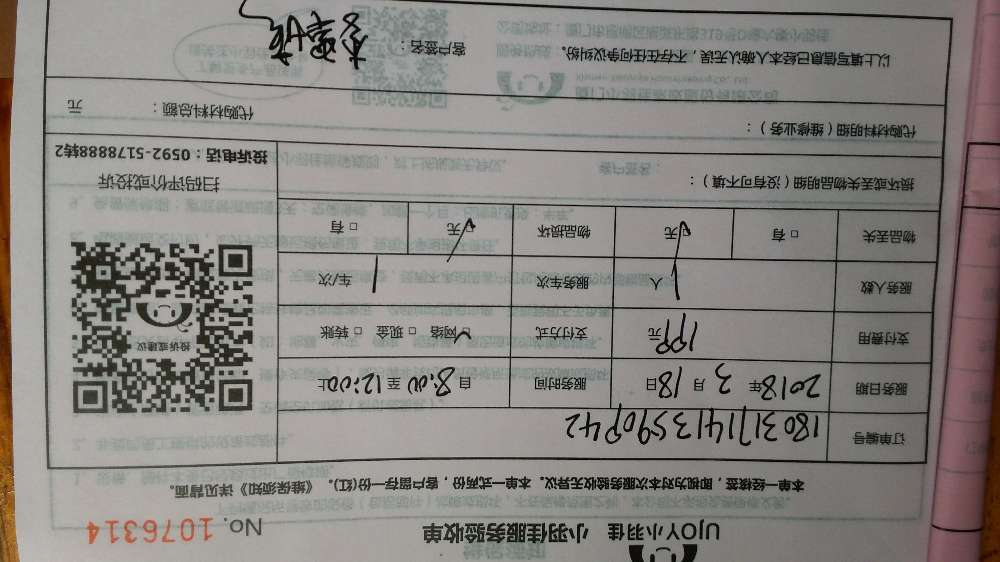 UJOY小羽佳 小羽佳服务验收单 No. 1076314
本单一经核签，即视为对本次服务验收无异议。本单一式两份，客户留存一份(红)。《维保须知》详见背面。
订单编号 180317141359094 42
服务日期 2018年 3 月 18 日 服务时间 自 8:00 至 12:00止
支付费用 199元 支付方式 网络 □ 现金 □ 转账
服务人数 1 人 服务车次 1 车/次
物品丢失 □ 有 □ 无 物品损坏 □ 有 □ 无
投诉或建议
扫码评价或投诉
投诉电话：0592-5178888转2
损坏或丢失物品明细（没有可不填）：
代购材料明细（维修业务）：
代购材料总额： 元
以上填写信息已经本人确认无误，不存在任何争议纠纷。 客户签名：